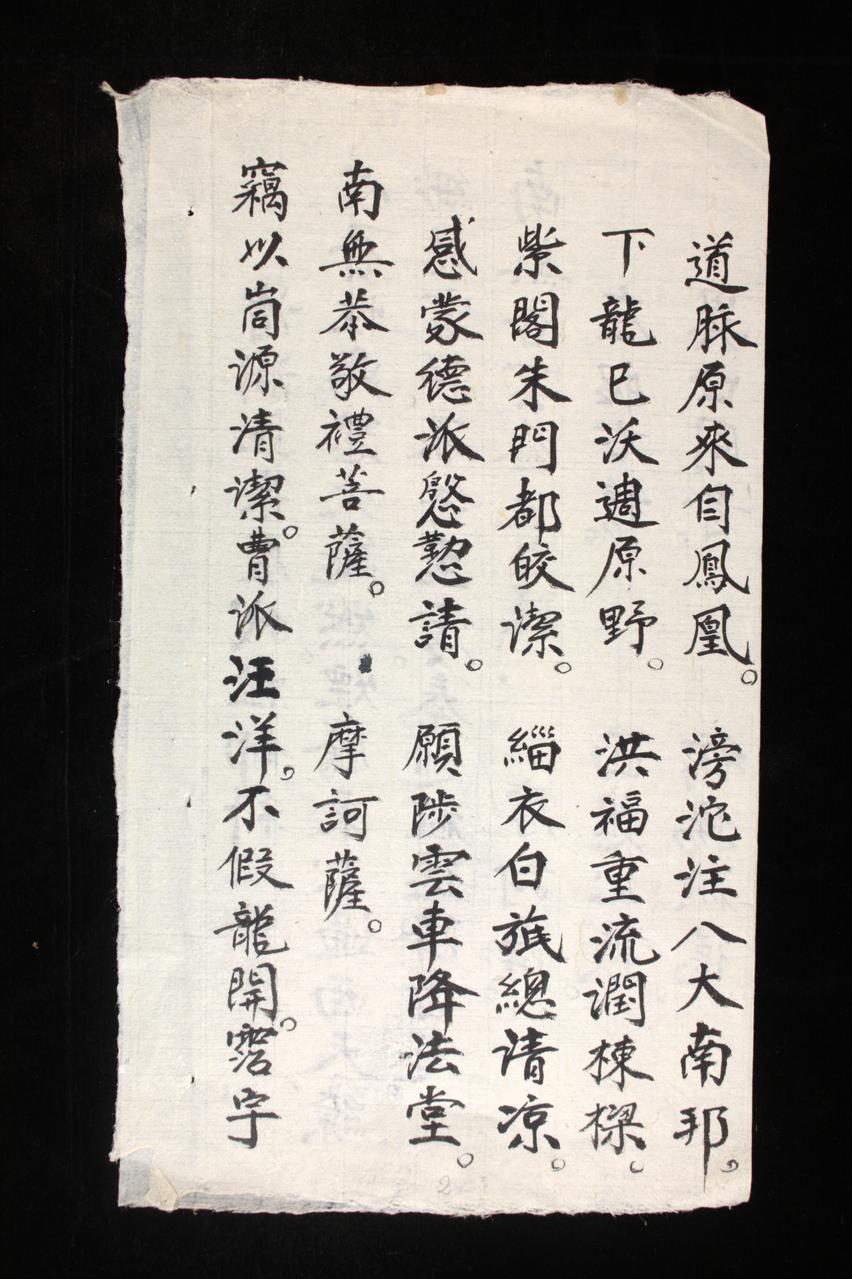 道脉原來自鳳凰。滂沱注八大南邦。
下龍已沃週原野。洪福重流潤棟樑。
紫閣朱門都皎潔。緇衣白㲽總清凉。
感蒙德派慇懃請。願陟雲車降法堂。
南無恭敬禮菩薩。摩訶薩。
竊以崗源清潔。曹派汪洋。不假龍開。字
2